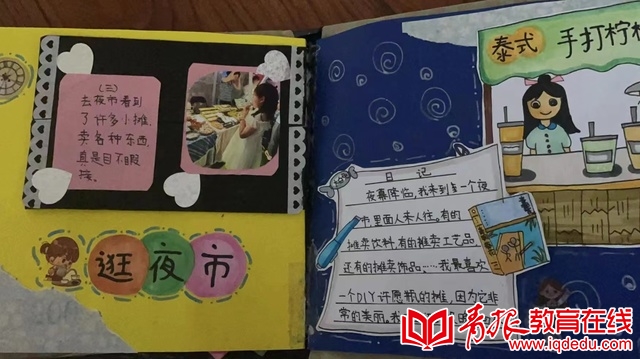 (三)
去夜市看到
了许多小摊,
卖各种东西,
真是目不暇
接。
逛夜市
泰式 手打柠檬
日记
夜幕降临,我来到
一个夜
市里面人来人往。有的
摊卖饮料,有的摊卖工艺品,
还有的摊卖饰品……我最喜欢
一个DIY许愿瓶的摊,因为它非
常的美丽。我
青报教育在线
www.iqdedu.com